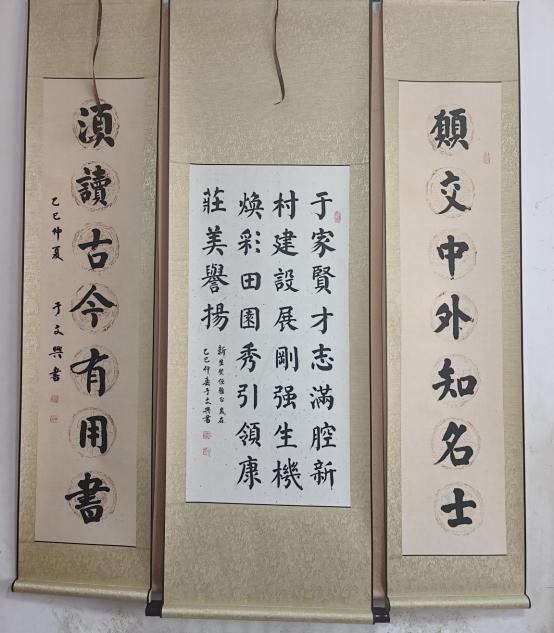 願交中外知名士
于家賢才志滿腔新
村建設展剛强生機
煥彩田園秀引領康
莊美譽揚
新生賢
乙巳仲夏于文興書
湏讀古今有用書
乙巳仲夏 于文興書